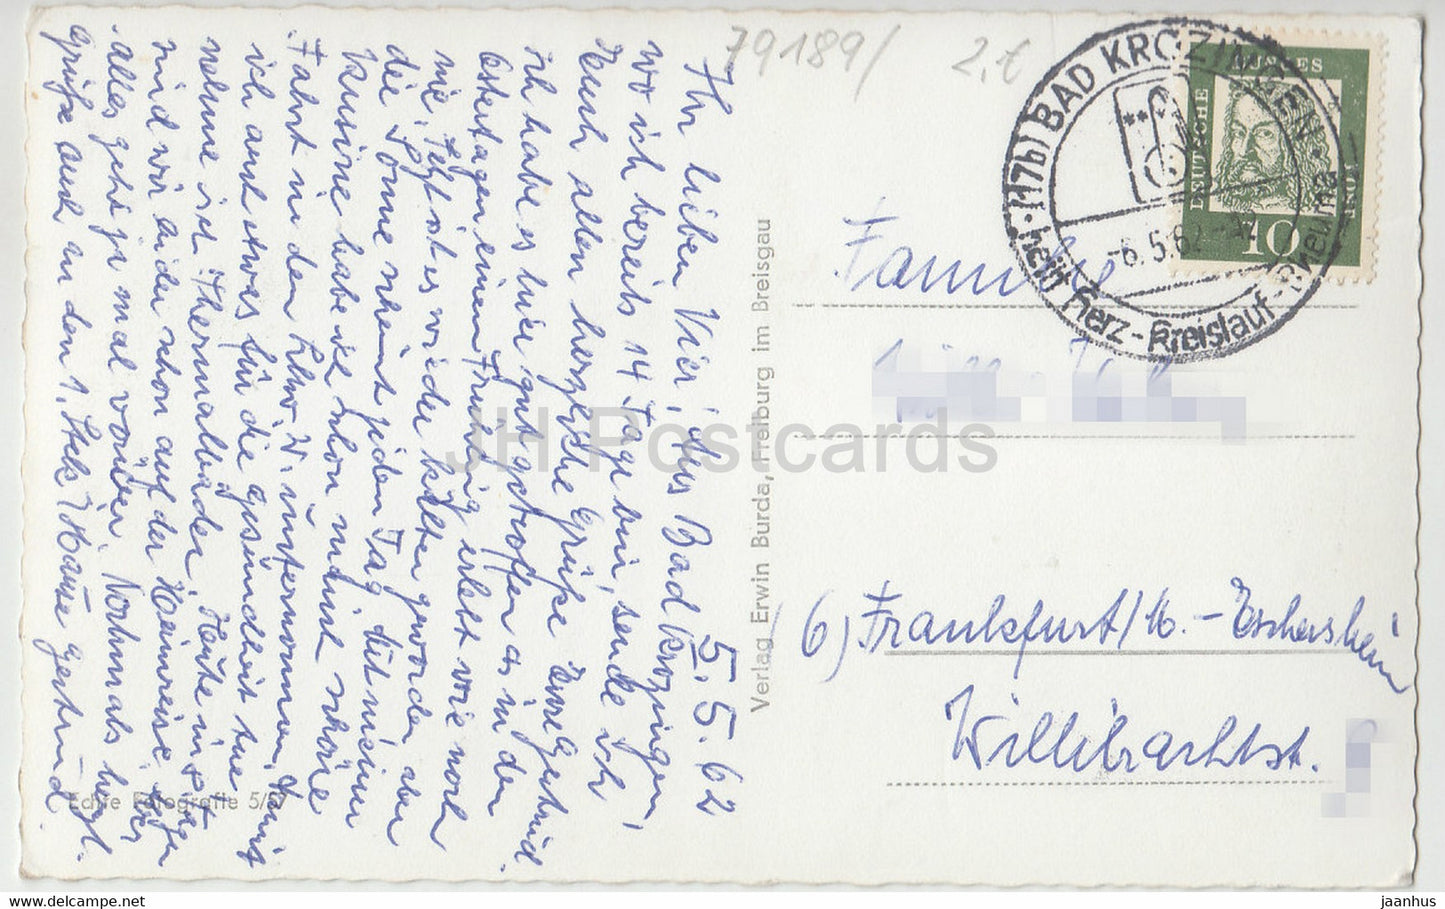 79189/ 2,€
5.5.62
Ihr lieben Vier! Aus Bad Krozingen,
wo ich bereits 14 Tage bin, sende ich
Euch allen herzliche Grüße Eure Gertrud
Ich habe es hier gut getroffen as in den
Ostertagen einen Frühling erlebt wie noch
nie. Jetzt ist es wieder kälter geworden aber
die Sonne scheint jeden Tag. Mit meiner
Kusine habe ich schon manch schöne
Fahrt in den Schw. W. unternommen.
ich auch etwas für die Gesundheit tue
nehme ich Thermalbäder. Heute in 8 Tagen
sind wir leider schon auf der Heimreise.
alles geht ja mal vorüber. Nochmals herzl.
Grüße auch in den 1. Stck. Gertrud.
Echte Fotografie 5/67
Verlag Erwin Burda, Freiburg im Breisgau
(17b) BAD KROZINGEN
-6.5.62-12
heilt Herz-Kreislauf-Rheuma
DEUTSCHE BUNDESPOST
10
Familie
(6) Frankfurt/M.-Eschersheim
Willibrachtst.
JH Postcards
jaanhus